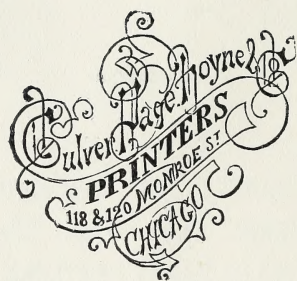 Culver, Page, Hoyne & Co
PRINTERS
118 & 120 MONROE ST
CHICAGO